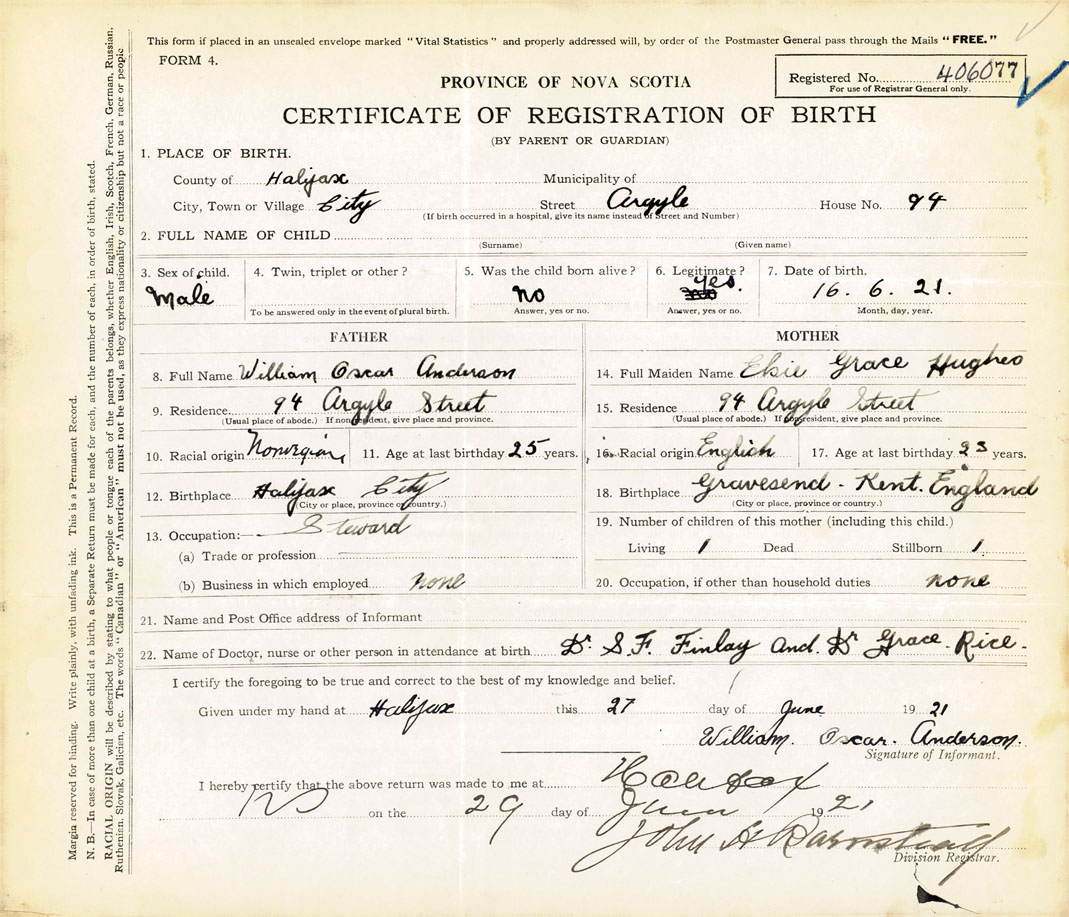 This form if placed in an unsealed envelope marked "Vital Statistics" and properly addressed will, by order of the Postmaster General pass through the Mails "FREE."
FORM 4.
Registered No. 406077
For use of Registrar General only.
PROVINCE OF NOVA SCOTIA
CERTIFICATE OF REGISTRATION OF BIRTH
(BY PARENT OR GUARDIAN)
1. PLACE OF BIRTH.
County of Halifax Municipality of
City, Town or Village City Street Argyle House No. 94
(If birth occurred in a hospital, give its name instead of Street and Number)
2. FULL NAME OF CHILD
(Surname) (Given name)
3. Sex of child. 4. Twin, triplet or other? 5. Was the child born alive? 6. Legitimate? 7. Date of birth.
Male no yes. 16. 6. 21.
To be answered only in the event of plural birth. Answer, yes or no. Answer, yes or no. Month, day, year.
FATHER
8. Full Name William Oscar Anderson
9. Residence 94 Argyle Street
(Usual place of abode.) If nonresident, give place and province.
10. Racial origin Norwegian 11. Age at last birthday 25 years.
12. Birthplace Halifax City
(City or place, province or country.)
13. Occupation:— Steward
(a) Trade or profession
(b) Business in which employed none
MOTHER
14. Full Maiden Name Elsie Grace Hughes
15. Residence 94 Argyle Street
(Usual place of abode.) If nonresident, give place and province.
16. Racial origin English 17. Age at last birthday 23 years.
18. Birthplace Gravesend - Kent. England
(City or place, province or country.)
19. Number of children of this mother (including this child.)
Living 1 Dead Stillborn 1.
20. Occupation, if other than household duties none
21. Name and Post Office address of Informant
22. Name of Doctor, nurse or other person in attendance at birth Dr S. F. Finlay And. Dr Grace. Rice.
I certify the foregoing to be true and correct to the best of my knowledge and belief.
Given under my hand at Halifax this 27 day of June 1921
William. Oscar. Anderson.
Signature of Informant.
I hereby certify that the above return was made to me at Halifax
on the 29 day of June 1921
John A Barnstead
Division Registrar.
Margin reserved for binding. Write plainly, with unfading ink. This is a Permanent Record.
N. B.—In case of more than one child at a birth, a Separate Return must be made for each, and the number of each, in order of birth, stated.
RACIAL ORIGIN will be described by stating to what people or tongue each of the parents belongs, whether English, Irish, Scotch, French, German, Russian,
Ruthenian, Slovak, Galician, etc. The words "Canadian" or "American" must not be used, as they express nationality or citizenship but not a race or people